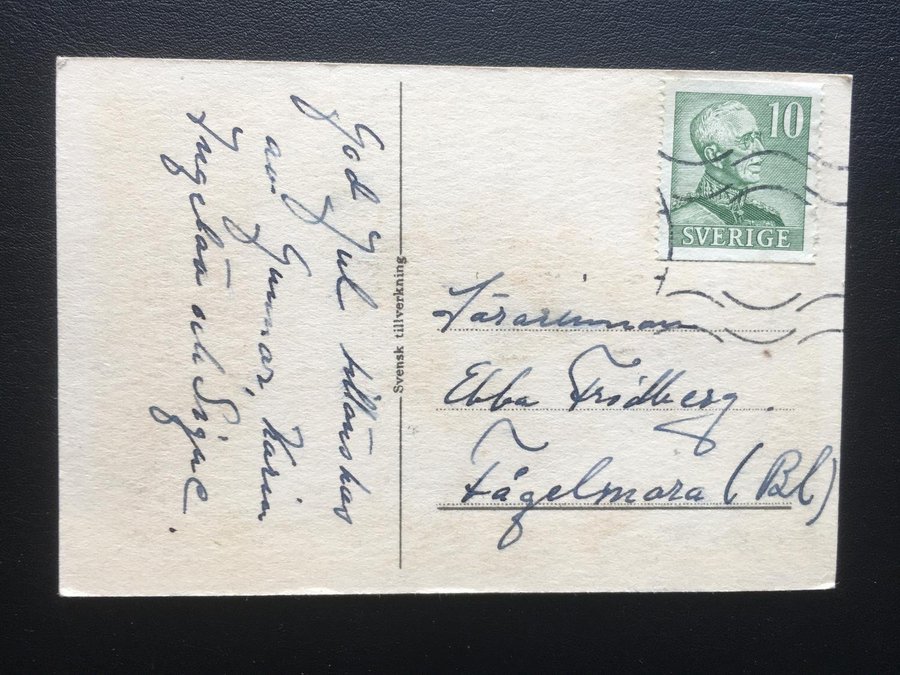 God Jul tillönskas
av Gunnar, Karin
Ingebor och Signe.
Svensk tillverkning
10
SVERIGE
Lärarinnan
Ebba Fridberg.
Fågelmara (Bl)